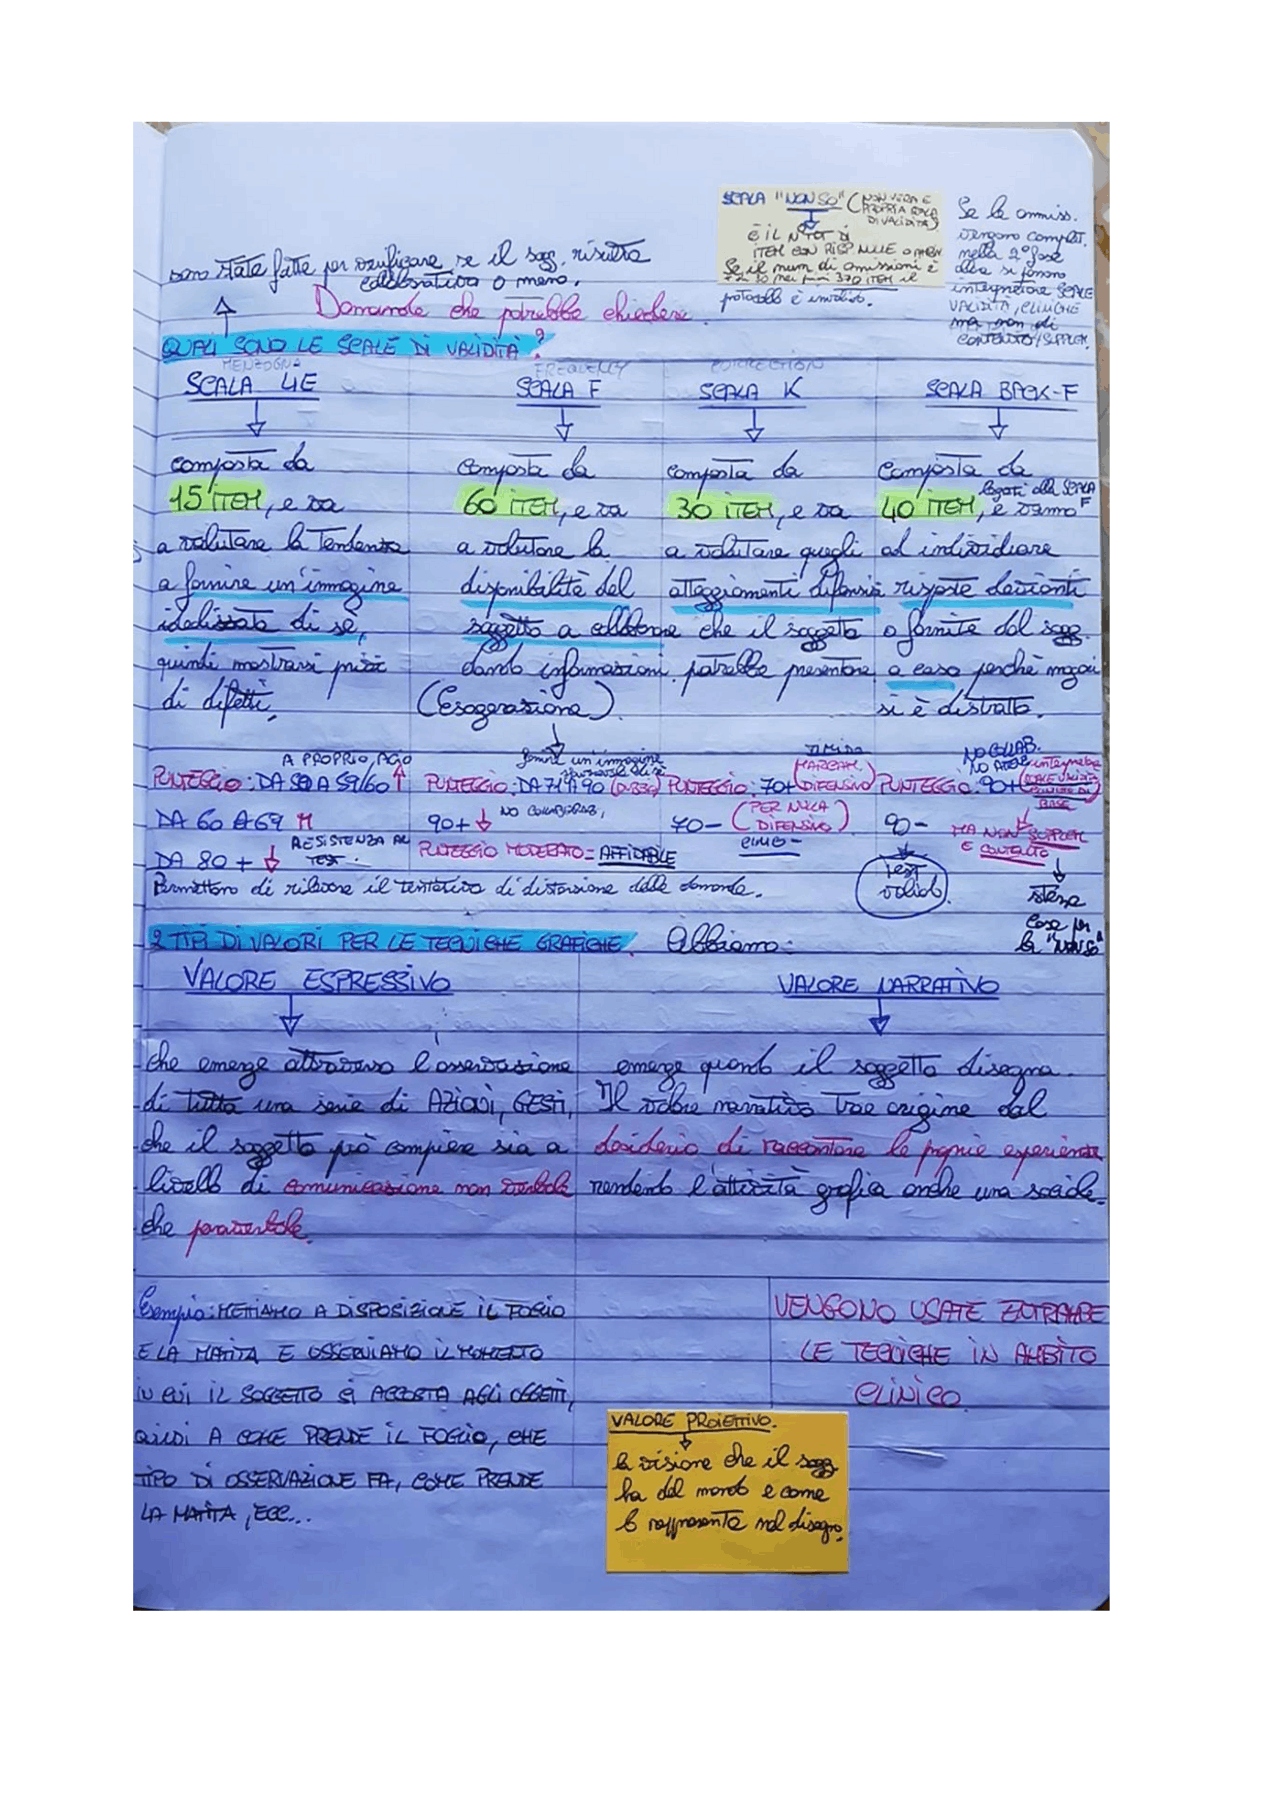 SCALA "NON SO" (NON VERA E
PROPRIA SCALA
DI VALIDITÀ)
È IL N° TOT DI
ITEM CON RISP. NULLE O
Se il num di omissioni è
30 nei primi 370 ITEM il
protocollo è invalido.
Se le omiss.
vengono complet.
nella 2° fase
allora si fanno
integrative SCALE
VALIDITÀ, CLINICHE
ma non di
CONTENUTO/SUPPLEM.
sono state fatte per verificare se il sogg. risulta
collaborativo o meno.
Domande che potrebbe chiedere.
QUALI SONO LE SCALE DI VALIDITÀ?
MENZOGNA
SCALA LIE
composta da
15 ITEM, e va
a valutare la tendenza
a fornire un'immagine
idealizzata di sé,
quindi mostrarsi privi
di difetti.
FREQUENCY
SCALA F
composta da
60 ITEM, e va
a valutare la
disponibilità del
soggetto a collaborare
dando informazioni.
(Esagerazione)
fornire un'immagine
CORRECTION
SCALA K
composta da
30 ITEM, e va
a valutare quegli
atteggiamenti difensivi
che il soggetto
potrebbe presentare
SCALA BACK-F
composta da
40 ITEM, legati alla SCALA F
e vanno
ad individuare
risposte devianti
o fornite dal sogg.
a caso perché magari
si è distratto.
A PROPRIO AGIO
PUNTEGGIO: DA 50 A 59/60
DA 60 A 69 M
RESISTENZA AL
TEST.
DA 80 +
PUNTEGGIO: DA 71 A 90
90+ NO COLLABORAB,
PUNTEGGIO MODERATO = AFFIDABILE
TIMIDO
PUNTEGGIO: 70+ (MARCAM.
DIFENSIVO)
70- (PER NULLA
DIFENSIVO)
NO COLLAB.
PUNTEGGIO: 90+ integrative
DI
BASE
90-
MA NON SUPPLEM
E CONTENUTO
Test
valido.
stessa
cosa per
la "NON SO"
Permettono di rilevare il tentativo di distorsione delle domande.
2 TIPI DI VALORI PER LE TECNICHE GRAFICHE. Abbiamo:
VALORE ESPRESSIVO
che emerge attraverso l'osservazione
di tutta una serie di AZIONI, GESTI,
che il soggetto può compiere sia a
livello di comunicazione non verbale
che paraverbale.
VALORE NARRATIVO
emerge quando il soggetto disegna.
Il valore narrativo trae origine dal
desiderio di raccontare le proprie esperienze
rendendo l'attività grafica anche una sociale.
Esempio: METTIAMO A DISPOSIZIONE IL FOGLIO
E LA MATITA E OSSERVIAMO IL MOMENTO
IN CUI IL SOGGETTO SI ACCOSTA AGLI OGGETTI,
QUINDI A COME PRENDE IL FOGLIO, CHE
TIPO DI OSSERVAZIONE FA, COME PRENDE
LA MATITA, ECC...
VENGONO USATE ENTRAMBE
LE TECNICHE IN AMBITO
CLINICO.
VALORE PROIETTIVO.
la visione che il sogg.
ha del mondo e come
lo rappresenta nel disegno.